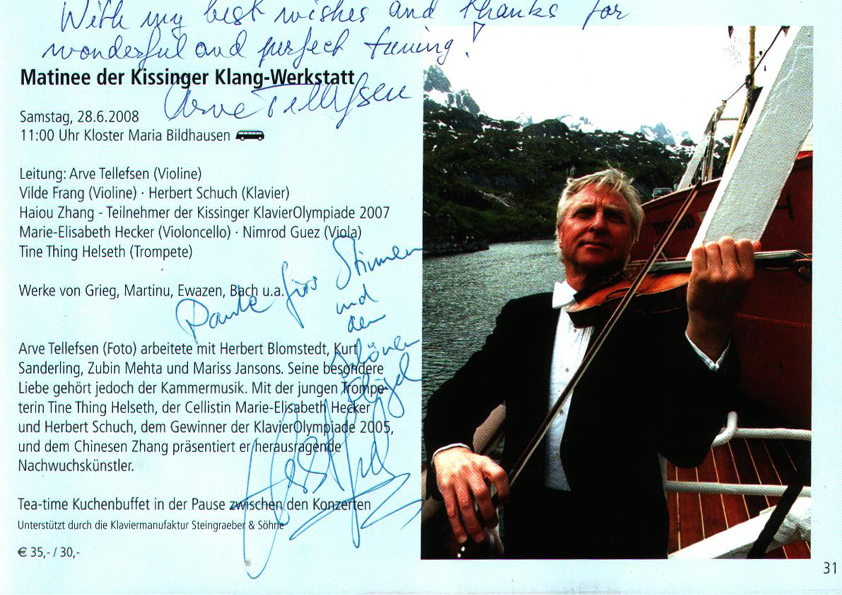 With my best wishes and thanks for
wonderful and perfect tuning!
Arve Tellefsen
Matinee der Kissinger Klang-Werkstatt
Samstag, 28.6.2008
11:00 Uhr Kloster Maria Bildhausen
Leitung: Arve Tellefsen (Violine)
Vilde Frang (Violine) · Herbert Schuch (Klavier)
Haiou Zhang - Teilnehmer der Kissinger KlavierOlympiade 2007
Marie-Elisabeth Hecker (Violoncello) · Nimrod Guez (Viola)
Tine Thing Helseth (Trompete)
Werke von Grieg, Martinu, Ewazen, Bach u.a.
Danke fürs Stimmen
und
den
schönen
Flügel
Arve Tellefsen (Foto) arbeitete mit Herbert Blomstedt, Kurt
Sanderling, Zubin Mehta und Mariss Jansons. Seine besondere
Liebe gehört jedoch der Kammermusik. Mit der jungen Trompe-
terin Tine Thing Helseth, der Cellistin Marie-Elisabeth Hecker
und Herbert Schuch, dem Gewinner der KlavierOlympiade 2005,
und dem Chinesen Zhang präsentiert er herausragende
Nachwuchskünstler.
Tea-time Kuchenbuffet in der Pause zwischen den Konzerten
Unterstützt durch die Klaviermanufaktur Steingraeber & Söhne
€ 35,- / 30,-
31